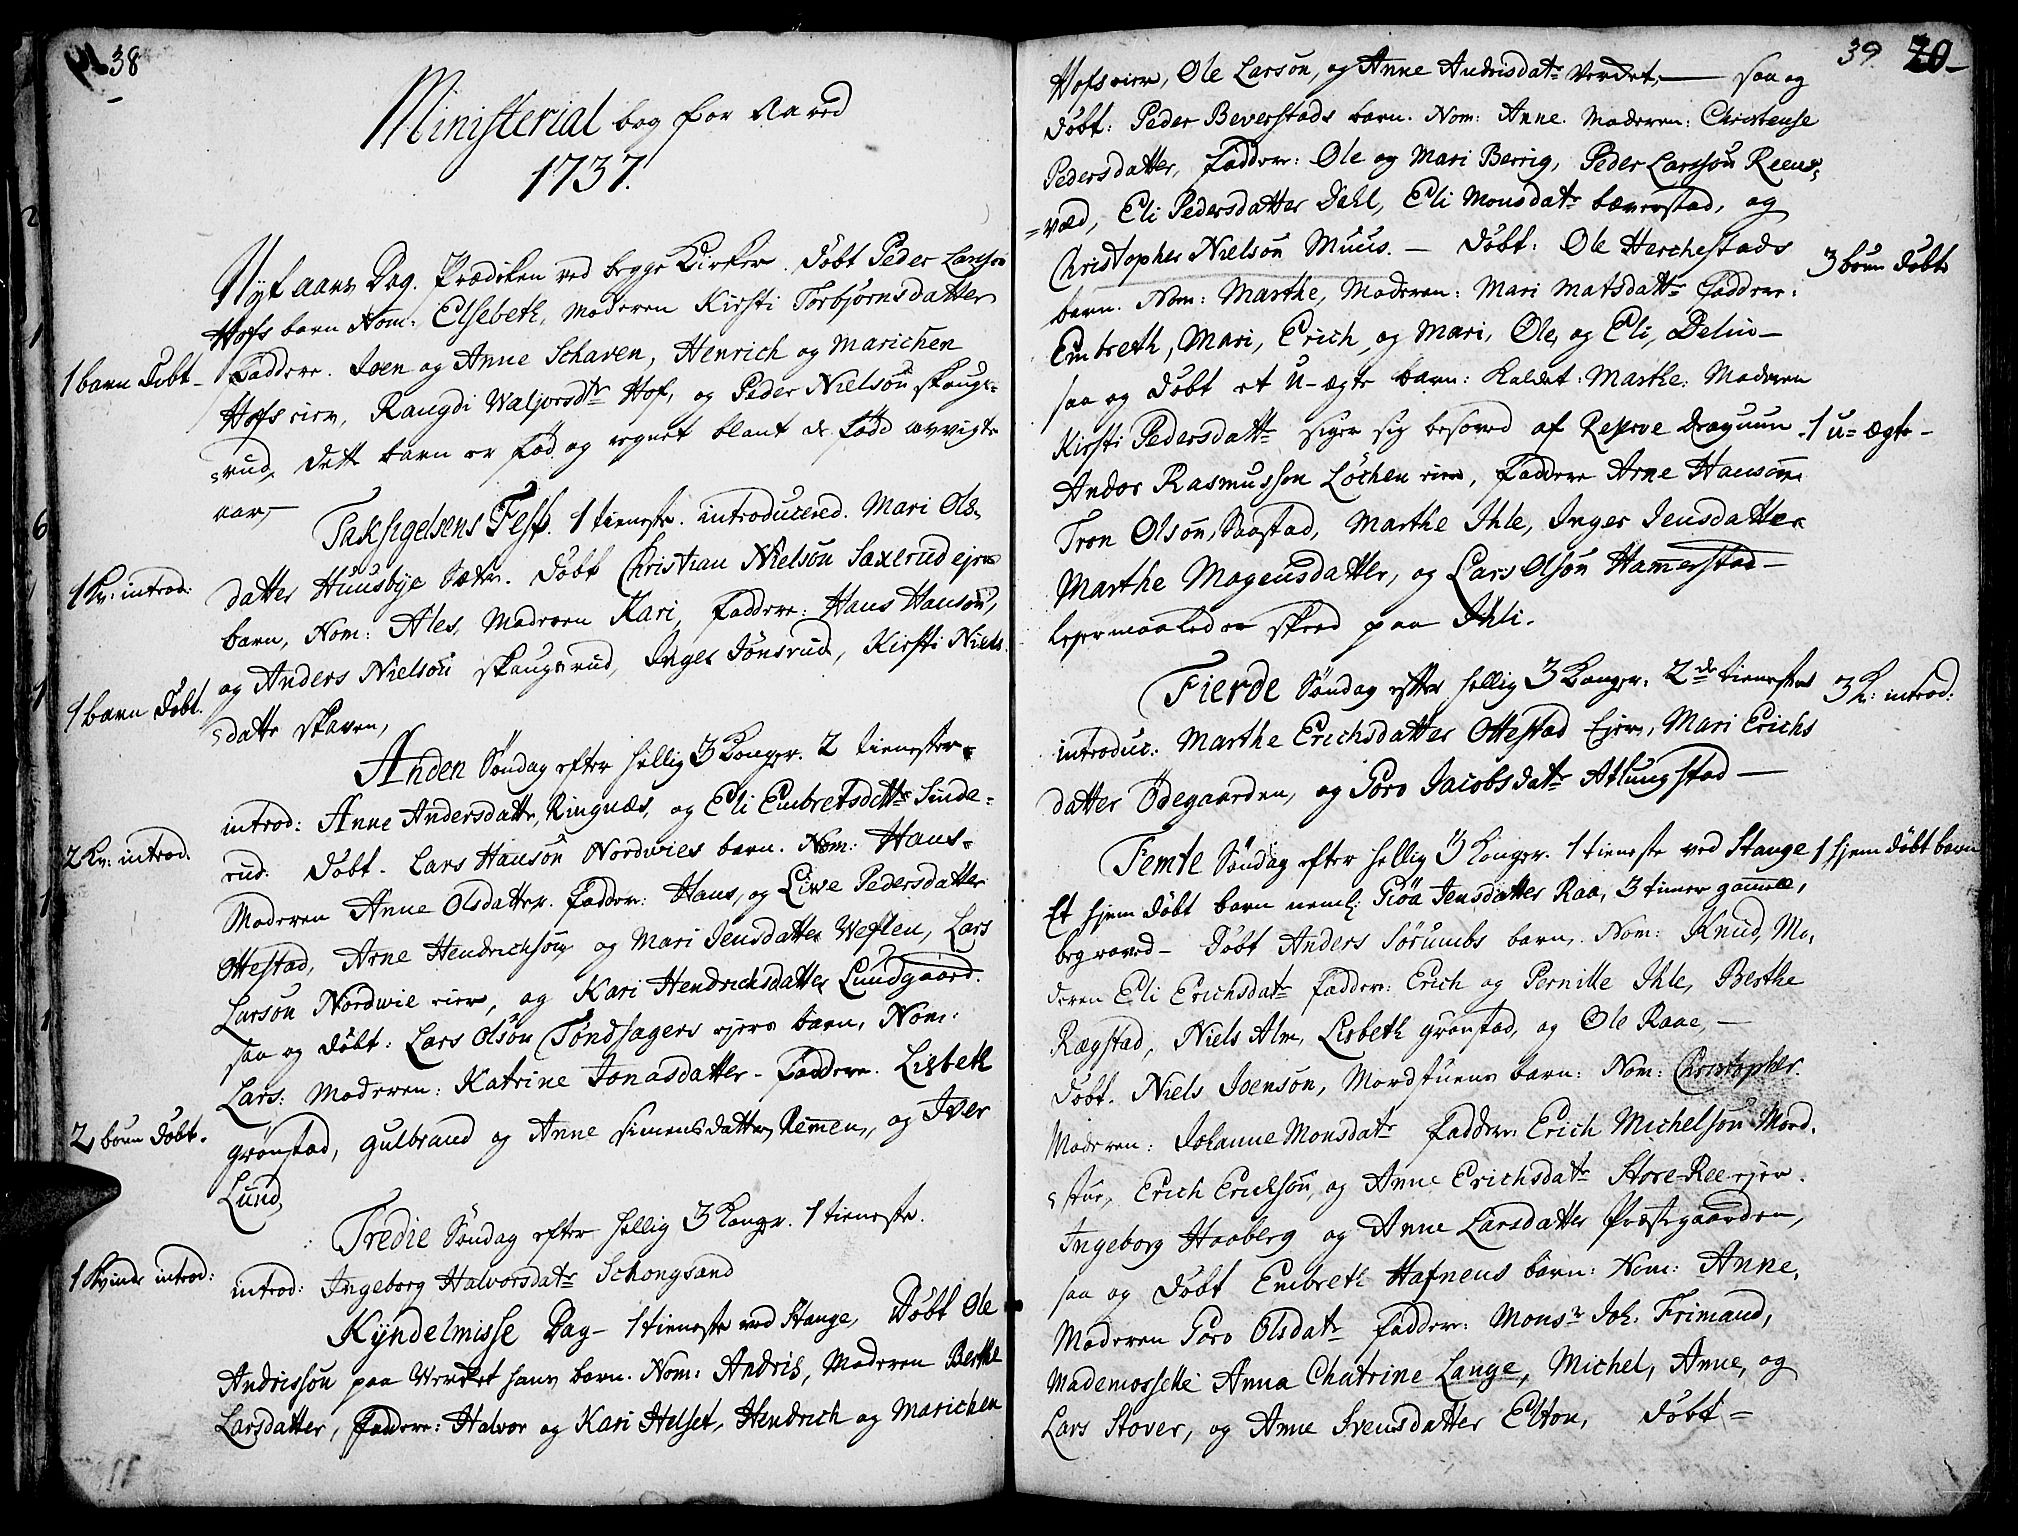 38
Ministerial bog for Aared
1737.
Nyt aars Dag. Prædiken ved begge Kirker. Døbt Peder Larsøn
Hofs barn Nom: Elsebeth, Moderen Kirsti Torbjørnsdatter
1 barn døbt - Faddere. Joen og Anne Schaven, Henrich og Marichen
Hofs eier, Rangdi Waljorsdtr Hof, og Peder Nielsøn skougs=
=rud, dette barn er fød og regnet blant de fødde avvigte
aar,-
Taksigelsens Fest. 1 tieneste. introducered. Mari Ols=
1 Kv: introd: datter Huusbye Sæter. Døbt Christian Nielsøn Saxlerud ejers
barn, Nom: Ales, Moderen Kari, Faddere: Hans Hansøn,
og Anders Nielsøn skougsrud, Inger Jønsrud, Kirsti Niels
1 barn døbt. =datter skaven,
Anden Søndag efter hellig 3 Konger. 2 tienester.
introd: Anne Andersdatter, Ringnæs, og Eli Embretsdatter Sinde=
2 Kv: introd. rud. Døbt. Lars Hansøn Nordvies barn. Nom: Hans.
Moderen Anne Olsdatter. Faddere: Hans, og Live Pedersdatter
Ottestad, Arne Hendrichsøn og Mari Jensdatter Weflen, Lars
Larsøn Nordvie eier, og Kari Hendrichsdatter Lundgaard.
saa og døbt: Lars Olsøn Tøndsagers ejers barn, Nom:
Lars: Moderen: Katrine Jonasdatter - Faddere. Lisbeth
2 børn døbt. grønstad, gulbrand og Anne Simensdatter, Remen, og Iver
Lund,
Tredie Søndag efter hellig 3 Konger. 1 tieneste.
1 Kvinde introd: introd: Ingeborg Halvorsdatr Schongsand
Kyndelmisse Dag - 1 tieneste ved Stange, Døbt Ole
Andrissøn paa Verket hans barn. Nom: Andris, Moderen Berthe
Larsdatter, Faddere: Halvor og Kari Helset, Hendrich og Marichen
39 20
Hofs eier, Ole Larsøn, og Anne Andrisdatr Verdet, — saa og
døbt: Peder Beverstads barn. Nom: Anne. Moderen: Christense
Pedersdatter, Faddere: Ole og Mari Berrig, Peder Larssøn Reens=
=væd, Eli Pedersdatter Dahl, Eli Monsdatr bæverstad, og
Christopher Nielsøn Muus. - Døbt: Ole Herchestads 3 børn døbt
barn. Nom: Marthe, Moderen: Mari Matsdatr Faddere:
Embreth, Mari, Erich, og Mari, Ole, og Eli, Delin -
saa og døbt et U-ægte barn: kaldet: Marthe: Moderen
Kirsti Pedersdatr siger sig besovet af Reserve Dragoun 1 u=ægte -
Andor Rasmusson Løchen eier, Faddere Arne Hansøn
Tron Olsøn, Saastad, Marthe Ihle, Inger Jensdatter
Marthe Mogensdatter, og Lars Olsøn Hammerstad -
lejermaalet er skeed paa Ihli.
Fierde Søndag efter hellig 3 Konger. 2de tienester 3 K: introd:
introduc: Marthe Erichsdatter Ottestad Eier, Mari Erichs
datter Ødegaarden, og Goro Jacobsdatr Atlungstad -
Femte Søndag efter hellig 3 Konger. 1 tieneste ved Stange 1 hjem døbt barn
Et hjem døbt barn neml: Giøa Jensdatter Raa, 3 timer gammel,
begraved - Døbt Anders Sørumbs barn, Nom: Knud, Mo,
deren Eli Erichsdatr Faddere: Erich og Pernille Ihle, Berthe
Rægstad, Niels Alm, Lisbeth grønstad, og Ole Raae, -
Døbt. Niels Joensøn, Mordstuens barn: Nom: Christopher.
Moderen: Johanne Monsdatr Faddere Erich Michelsøn Mord.
=stue, Erich Erichsøn, og Anne Erichsdatr Store-Ree ejer.
Ingeborg Haaberg og Anne Larsdatter Præstegaarden,
saa og døbt Embreth Hafnens barn: Nom: Anne,
Moderen Goro Olsdatr Faddere: Monsr Joh. Frimand,
Mademosselle Anna Chatrine Lange, Michel, Anne, og
Lars Stover, og Anne Svensdatter Elton, Døbt =